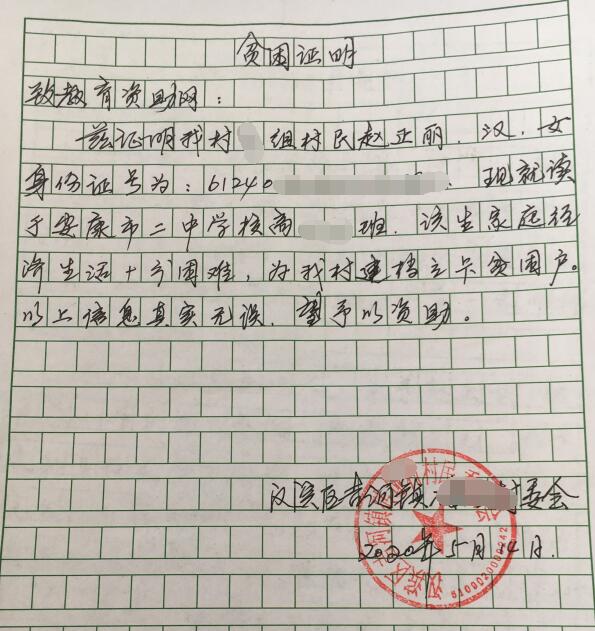 贫困证明
致教育资助网：
兹证明我村 组村民赵正丽，汉，女
身份证号为：61240 ，现就读
于安康市二中学校高 班．该生家庭经
济生活十分困难，为我村建档立卡贫困户。
以上信息真实无误．望予以资助。
汉滨区吉河镇 村委会
2020年5月14日．
6109020000242